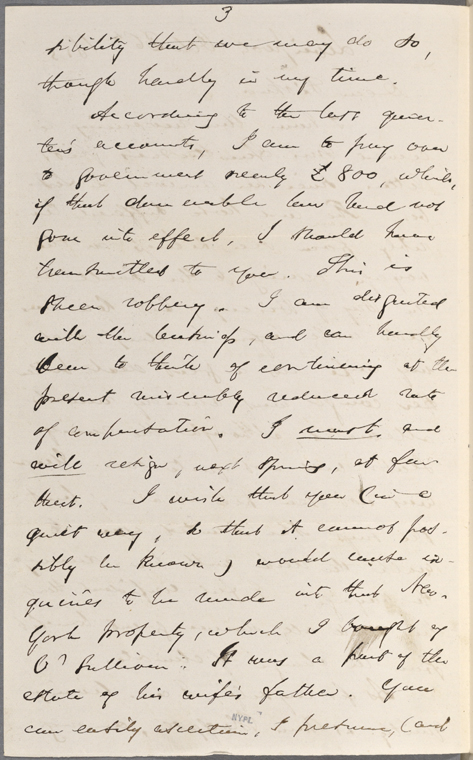 3
sibility that we may do so,
though hardly in my time.
According to the last quar-
ter's accounts, I am to pay over
to government nearly £800 which,
if that damnable law had not
gone into effect, I should have
transmitted to you. This is
sheer robbery. I am disgusted
with the business, and can hardly
bear to think of continuing at the
present miserably reduced rate
of compensation. I must and
will resign, next spring, at
that. I wish that you (in a
quiet way, so that it cannot pos-
sibly be known) would cause in-
quiries to be made into that New-
York property, which I bought of
O'Sullivan. It was a part of the
estate of his wife's father. You
can easily ascertain, I presume, (and
NYPL